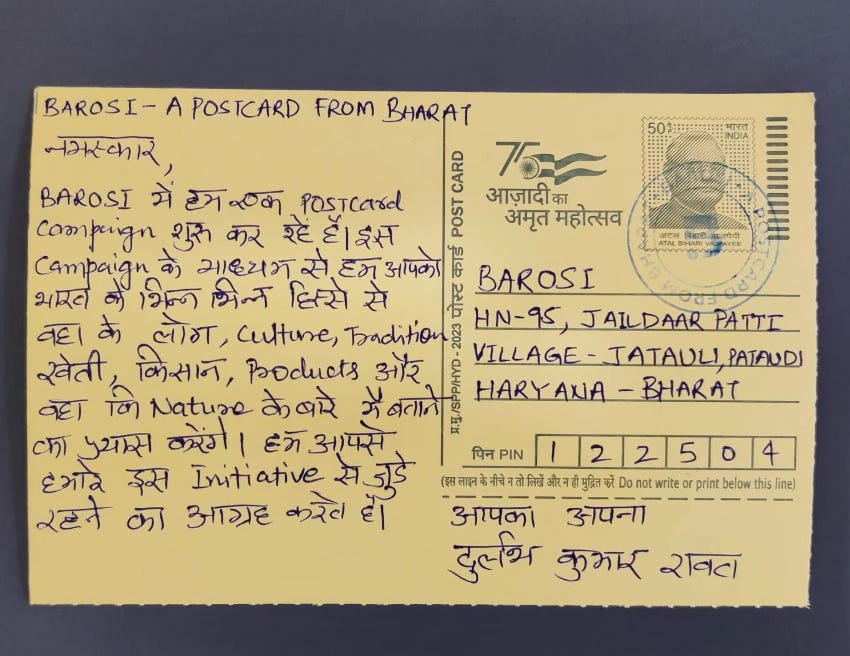 BAROSI - A POSTCARD FROM BHARAT
नमस्कार,
BAROSI में हम एक POSTCARD
Campaign शुरू कर रहें है। इस
Campaign के माध्यम से हम आपको
भारत के भिन्न भिन्न हिस्से से
वहा के लोग, Culture, Tradition
खेती, किसान, Products और
वहा कि Nature के बारे में बताने
का प्रयास करेंगे। हम आपसे
हमारे इस Initiative से जुड़े
रहने का आग्रह करते है।
प्र.मु./SPP/HYD - 2023 पोस्ट कार्ड POST CARD
75
आज़ादी का
अमृत महोत्सव
50
भारत
INDIA
अटल बिहारी वाजपेयी
ATAL BIHARI VAJPAYEE
A POSTCARD FROM BHARAT
BAROSI
HN-95, JAILDAAR PATTI
VILLAGE - JATAULI, PATAUDI
HARYANA - BHARAT
पिन PIN 1 2 2 5 0 4
(इस लाइन के नीचे न तो लिखें और न ही मुद्रित करें Do not write or print below this line)
आपका अपना
दुर्लभ कुमार रावत